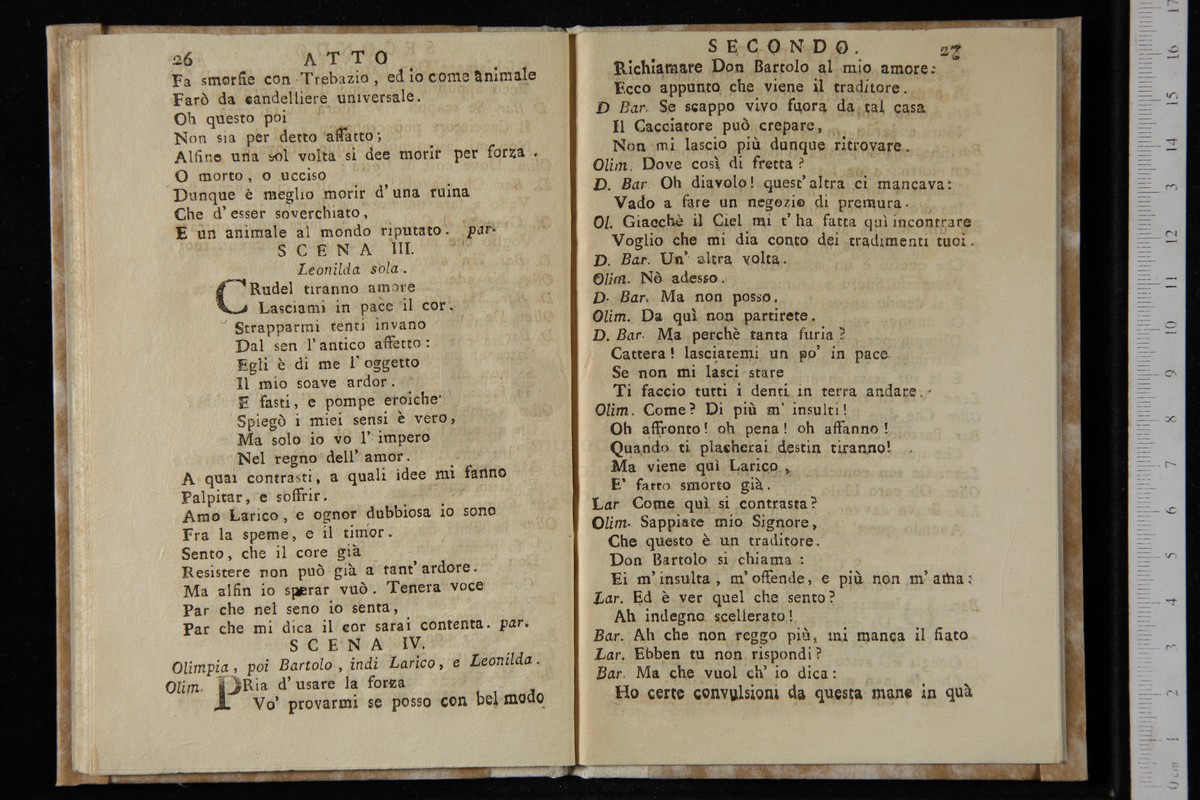 26 ATTO
Fa smorfie con Trebazio, ed io come animale
Farò da candelliere universale.
Oh questo poi
Non sia per detto affatto;
Alfine una sol volta si dee morir per forza.
O morto, o ucciso
Dunque è meglio morir d'una ruina
Che d'esser soverchiato,
E un animale al mondo riputato. par.
SCENA III.
Leonilda sola.
CRudel tiranno amore
Lasciami in pace il cor.
Strapparmi tenti invano
Dal sen l'antico affetto:
Egli è di me l'oggetto
Il mio soave ardor.
E fasti, e pompe eroiche
Spiegò i miei sensi è vero,
Ma solo io vo l'impero
Nel regno dell'amor.
A quai contrasti, a quali idee mi fanno
Palpitar, e soffrir.
Amo Larico, e ognor dubbiosa io sono
Fra la speme, e il timor.
Sento, che il core già
Resistere non può già a tant'ardore.
Ma alfin io sperar vuò. Tenera voce
Par che nel seno io senta,
Par che mi dica il cor sarai contenta. par.
SCENA IV.
Olimpia, poi Bartolo, indi Larico, e Leonilda.
Olim. PRia d'usare la forza
Vo' provarmi se posso con bel modo
SECONDO. 27
Richiamare Don Bartolo al mio amore:
Ecco appunto che viene il traditore.
D Bar. Se scappo vivo fuora da tal casa
Il Cacciatore può crepare,
Non mi lascio più dunque ritrovare.
Olim. Dove così di fretta?
D. Bar Oh diavolo! quest'altra ci mancava:
Vado a fare un negozio di premura.
Ol. Giacchè il Ciel mi t'ha fatta quì incontrare
Voglio che mi dia conto dei tradimenti tuoi.
D. Bar. Un' altra volta.
Olim. Nò adesso.
D. Bar. Ma non posso.
Olim. Da quì non partirete.
D. Bar. Ma perchè tanta furia?
Cattera! lasciatemi un po' in pace
Se non mi lasci stare
Ti faccio tutti i denti in terra andare.
Olim. Come? Di più m' insulti!
Oh affronto! oh pena! oh affanno!
Quando ti placherai destin tiranno!
Ma viene quì Larico,
E' fatto smorto già.
Lar Come quì si contrasta?
Olim. Sappiate mio Signore,
Che questo è un traditore.
Don Bartolo si chiama:
Ei m'insulta, m'offende, e più non m'ama:
Lar. Ed è ver quel che sento?
Ah indegno scellerato!
Bar. Ah che non reggo più, mi manca il fiato
Lar. Ebben tu non rispondi?
Bar. Ma che vuol ch' io dica:
Ho certe convulsioni da questa mane in quà
0 cm 1 2 3 4 5 6 7 8 9 10 11 12 13 14 15 16 17